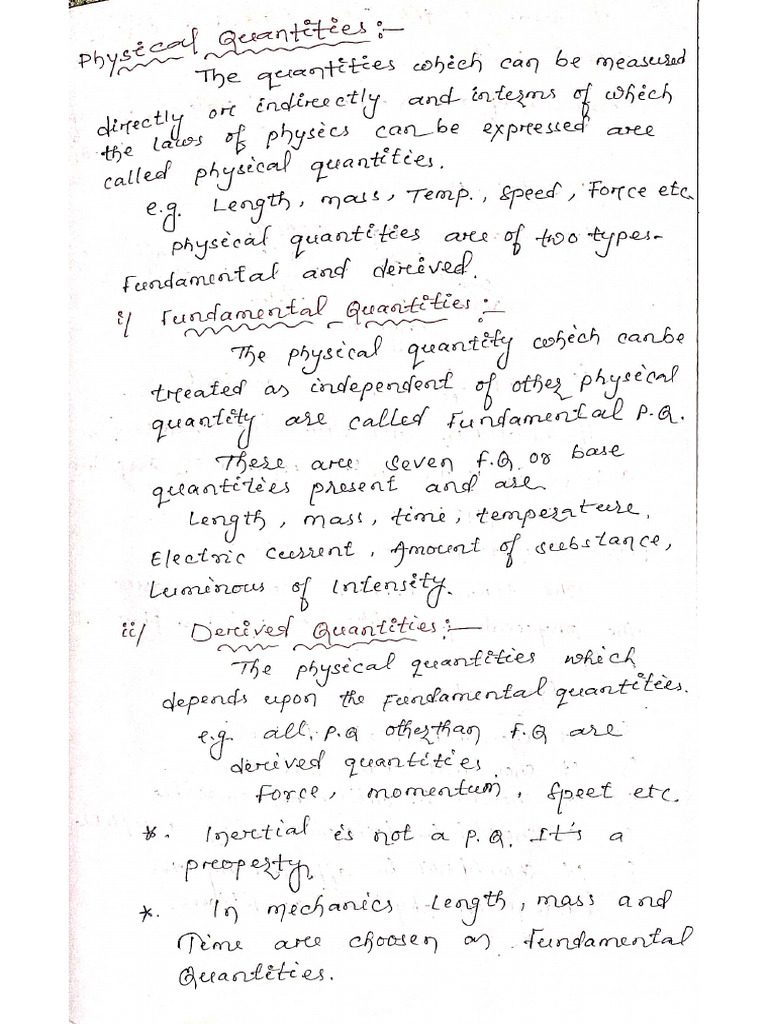 Physical Quantities:-
The quantities which can be measured
directly or indirectly and interms of which
the laws of physics can be expressed are
called physical quantities.
e.g. Length, mass, Temp., speed, Force etc.
physical quantities are of two types-
Fundamental and derived.
i/ Fundamental Quantities:-
The physical quantity which canbe
treated as independent of other physical
quantity are called Fundamental P.Q.
There are seven F.Q or base
quantities present and are
Length, mass, time, temperature,
Electric current, Amount of substance,
Luminous of Intensity.
ii/ Derived Quantities:-
The physical quantities which
depends upon the Fundamental quantities.
e.g. all P.Q otherthan F.Q are
derived quantities
Force, momentum, Speet etc.
*. Inertial is not a P.Q. It's a
property.
*. In mechanics Length, mass and
Time are choosen as Fundamental
Quantities.